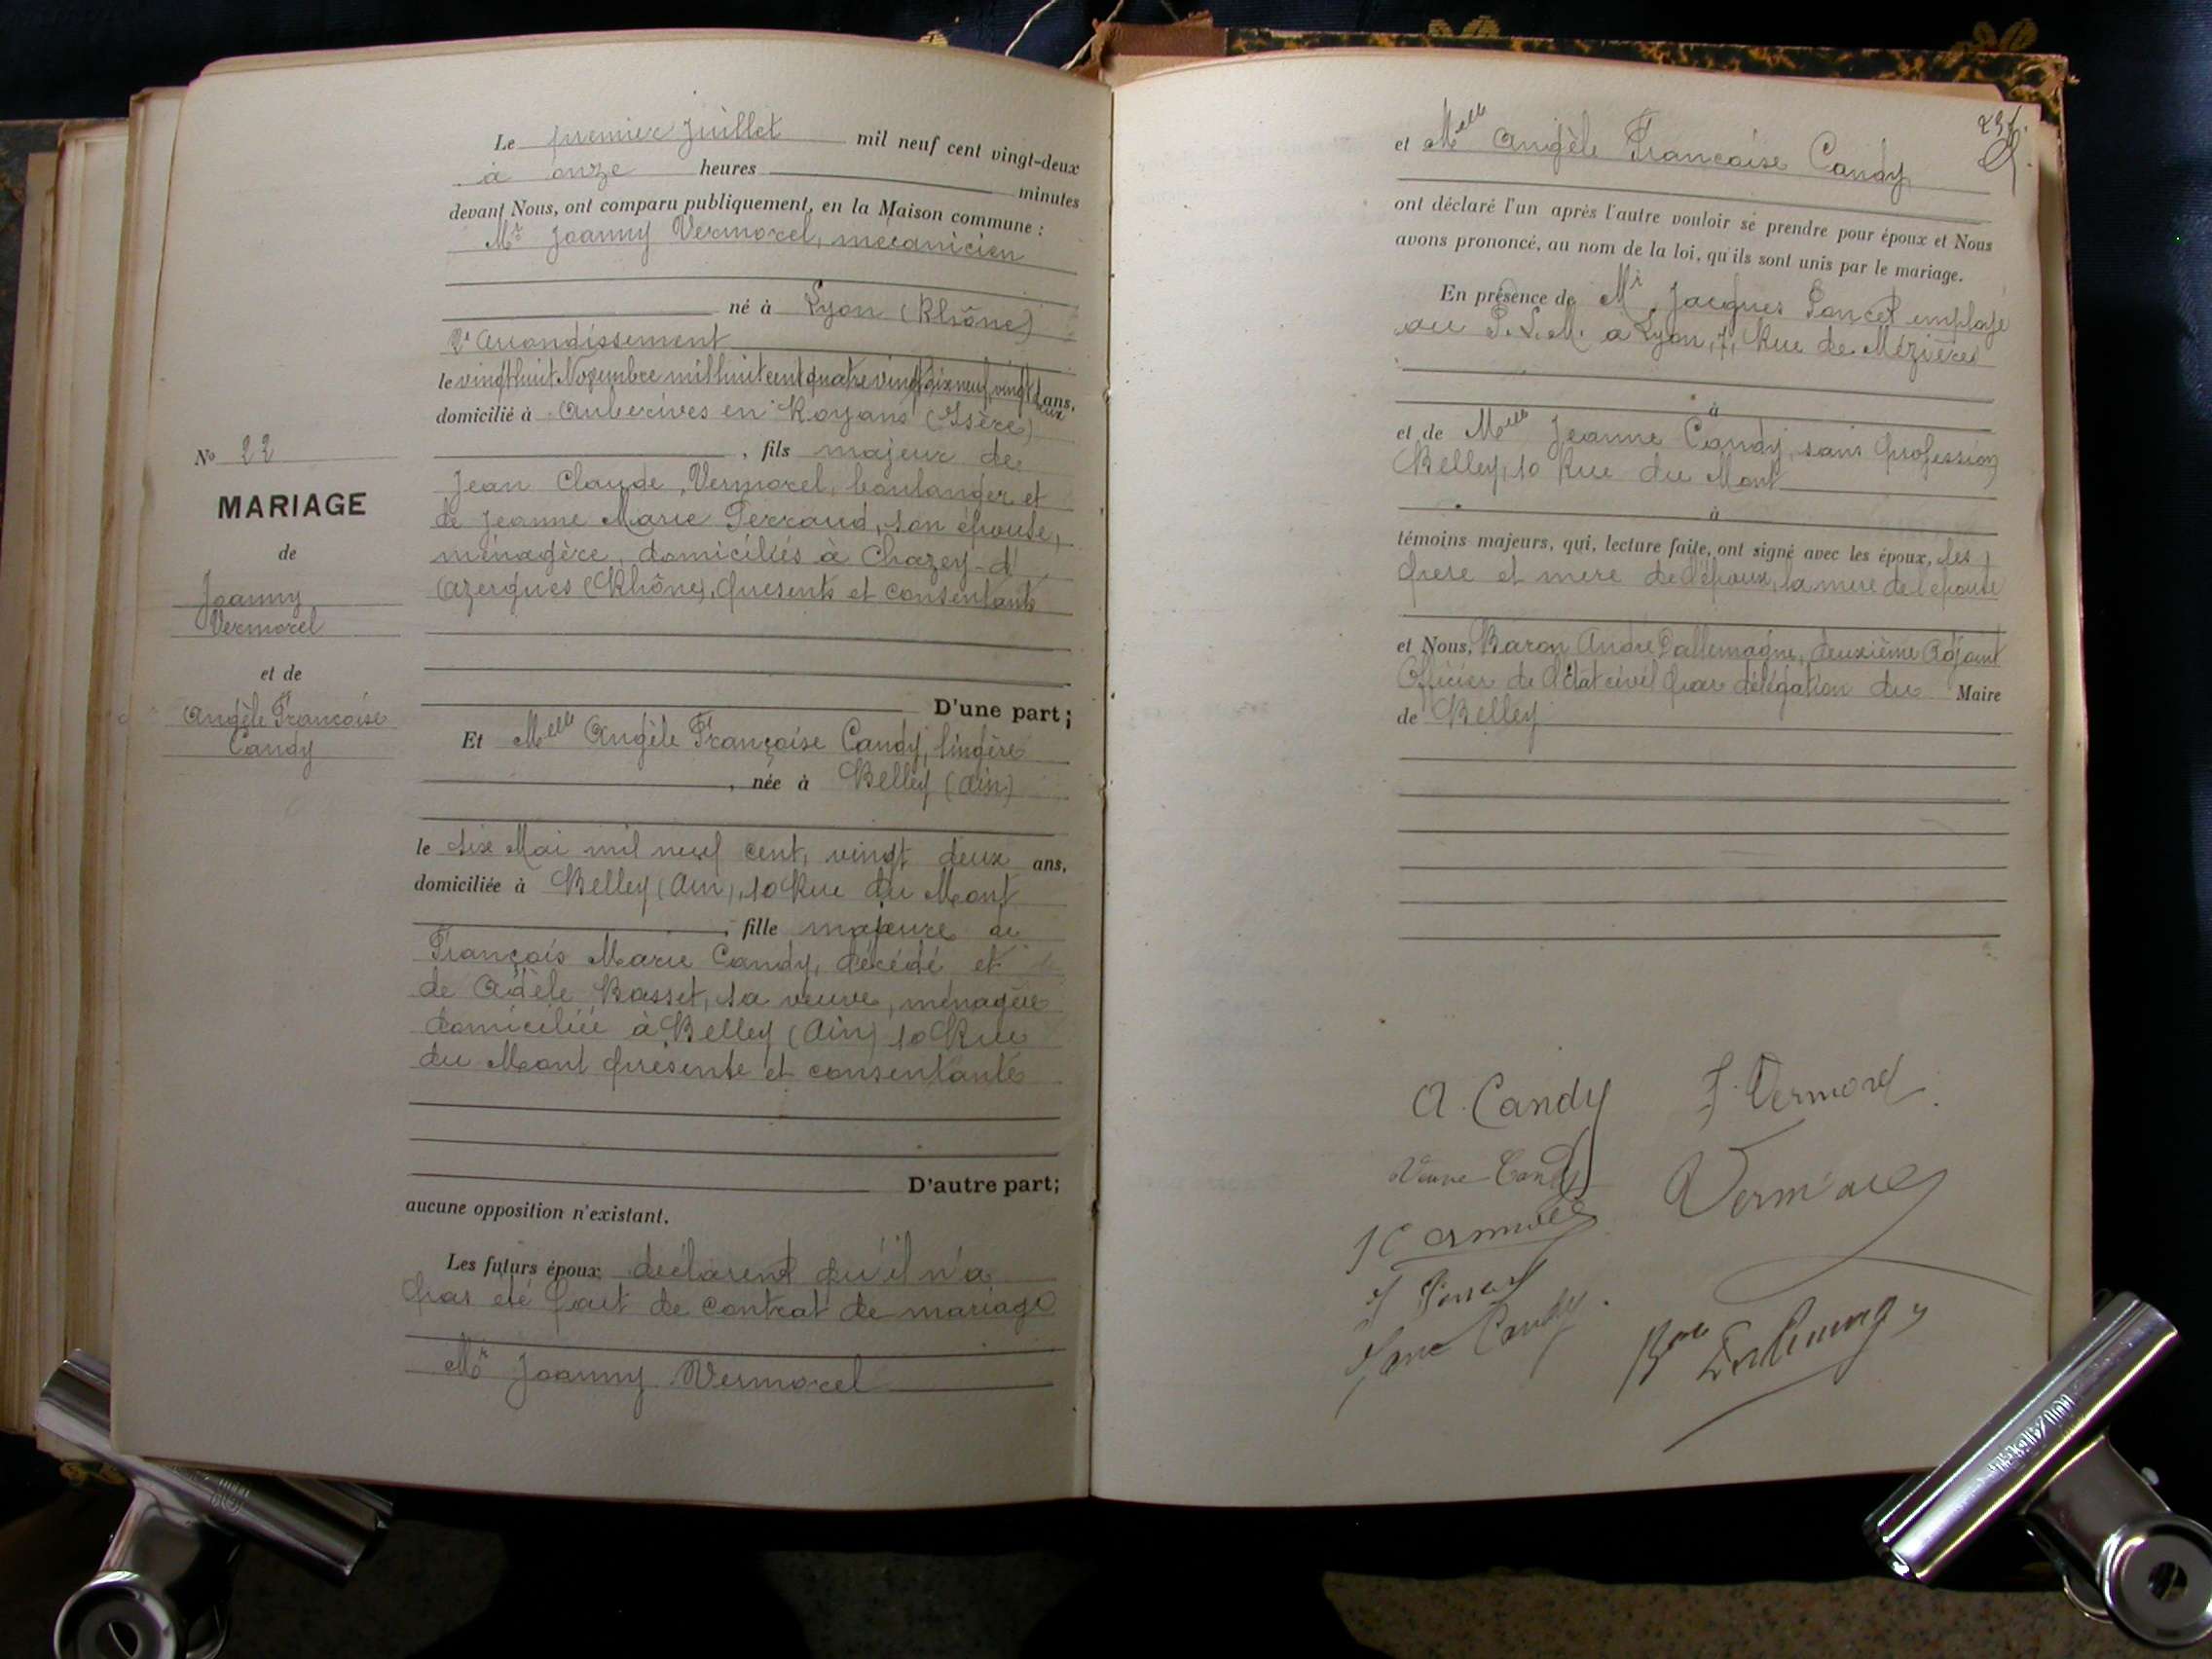 Le premier Juillet mil neuf cent vingt-deux
à onze heures minutes
devant Nous, ont comparu publiquement, en la Maison commune :
Mr Joanny Vermorel, mécanicien
né à Lyon (Rhône)
2e Arrondissement
le vingt huit Novembre mil huit cent quatre vingt dix neuf, vingt deux ans,
domicilié à Auberives en Royans (Isère)
, fils majeur de
Jean Claude Vermorel, boulanger et
de Jeanne Marie Perraud, son épouse,
ménagère, domiciliés à Chazey-d'
Azergues (Rhône), présents et consentants
D'une part ;
Et Melle Angèle Françoise Candy, lingère
, née à Belley (Ain)
le six Mai mil neuf cent, vingt deux ans,
domiciliée à Belley (Ain), 10 Rue du Mont
, fille majeure de
François Marie Candy, décédé et
de Adèle Basset, sa veuve, ménagère
domiciliée à Belley (Ain) 10 Rue
du Mont présente et consentante
D'autre part ;
aucune opposition n'existant.
Les futurs époux déclarent qu'il n'a
pas été fait de contrat de mariage
Mr Joanny Vermorel
No 22
MARIAGE
de
Joanny
Vermorel
et de
Angèle Françoise
Candy
et Melle Angèle Francoise Candy
ont déclaré l'un après l'autre vouloir se prendre pour époux et Nous
avons prononcé, au nom de la loi, qu'ils sont unis par le mariage.
En présence de Mr Jacques Poncet employé
au P.L.M. a Lyon, 7, Rue de Mézières
à
et de Melle Jeanne Candy, sans profession
Belley, 10 Rue du Mont
à
témoins majeurs, qui, lecture faite, ont signé avec les époux, les
père et mere de l'époux, la mere de l'epouse
et Nous, Baron André Dallemagne, deuxième Adjoint
Officier de l'état civil par délégation du Maire
de Belley
A. Candy J. Vermorel
Veuve Candy Vermorel
J Poncet
Jane Candy
Bon Dallemagne